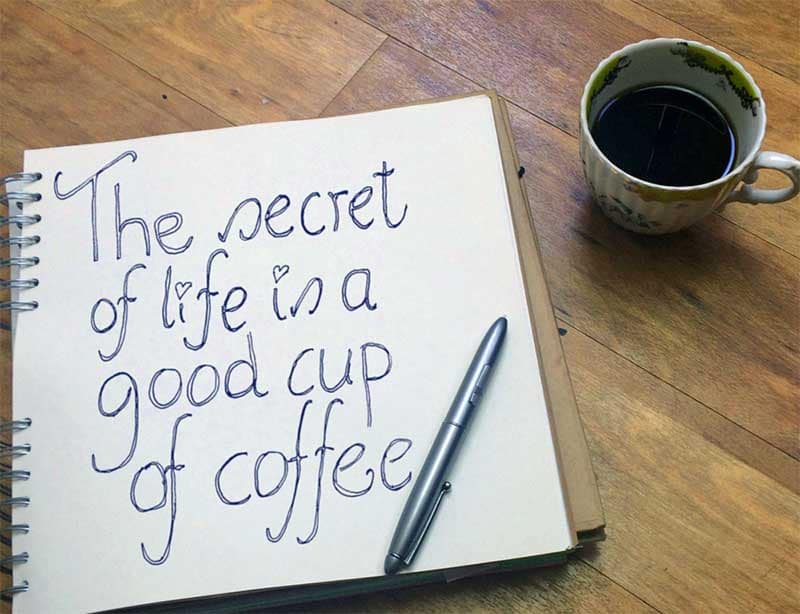 The secret
of life is a
good cup
of coffee